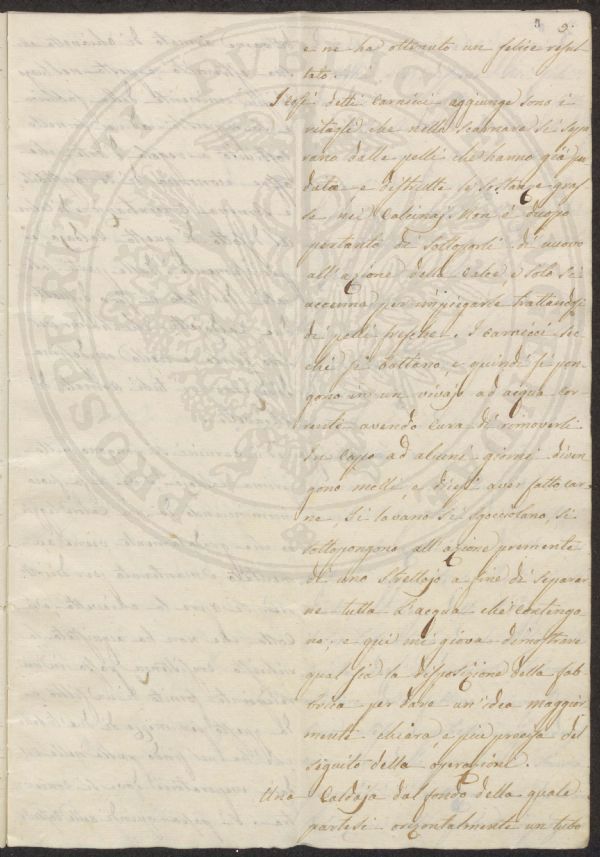 3.
e ne ha ottenuto un felice resul
tato.
I così detti carnicci aggiunge sono i
ritagli che nello scarnare si sepa
rano dalle pelli che hanno già per
duta e distrutte le sostanze gras
se nei Calcinaj. Non è duopo
pertanto di sottoporli di nuovo
all'azione della Calce, e solo si
accenna per impiegarle trattandosi
di pelli fresche. I carnicci sec
chi si battono e quindi si pon
gono in un vivajo ad acqua cor
rente avendo cura di rimoverli
In capo ad alcuni giorni diven
gono molli, e dicesi aver fatto car
ne, Si lavano si sgocciolano, si
sottopongono all'azione premente
di uno Strettojo a fine di separar
ne tutta l'acqua che contengo
no, e qui mi giova dimostrare
qual sia la disposizione della fab
brica per dare un'idea maggior
mente chiara e più precisa del
seguito della operazione.
Una Caldaja dal fondo della quale
partesi orizontalmente un tubo
PROSPERITATI PUBLICAE